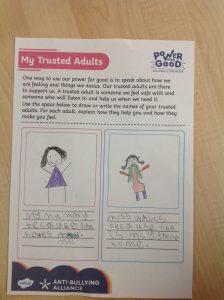 My Trusted Adults
POWER
FOR
GOOD
One way to use our power for good is to speak about how we
are feeling and things we notice. Our trusted adults are there
to support us. A trusted adult is someone we feel safe with and
someone who will listen to and help us when we need it.
Use the space below to draw or write the names of your trusted
adults. For each adult, explain how they help you and how they
make you feel.
My mummy
because she
loves
me
miss
because she
is my
some.
ANTI-BULLYING
ALLIANCE